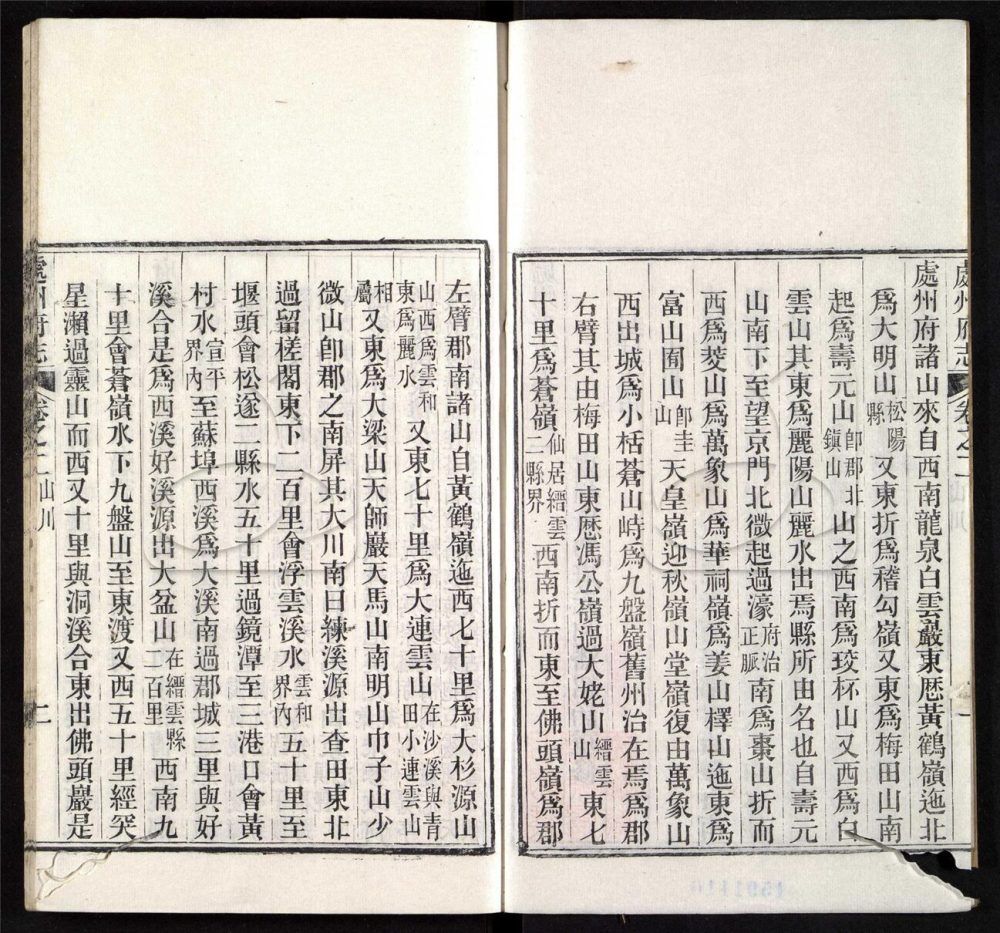 處州府志 卷之二
處州府諸山來自西南龍泉白雲巖東歷黃鶴嶺迤北
爲大明山松陽縣又東折爲稽勾嶺又東爲梅田山南
起爲壽元山卽郡北鎭山山之西南爲珓杯山又西爲白
雲山其東爲麗陽山麗水出焉縣所由名也自壽元
山南下至望京門北微起過濠府治正脈南爲棗山折而
西爲芰山爲萬象山爲華祠嶺爲姜山檡山迤東爲
富山囿山卽圭山天皇嶺迎秋嶺山堂嶺復由萬象山
西出城爲小栝蒼山峙爲九盤嶺舊州治在焉爲郡
右臂其由梅田山東歷馮公嶺過大姥山縉雲山東七
十里爲蒼嶺仙居縉雲二縣界西南折而東至佛頭嶺爲郡
左臂郡南諸山自黃鶴嶺迤西七十里爲大杉源山
山西爲雲和東爲麗水又東七十里爲大連雲山在沙溪與青田小連雲山
相屬又東爲大梁山天師巖天馬山南明山巾子山少
微山卽郡之南屏其大川南曰練溪源出查田東北
過留槎閣東下二百里會浮雲溪水雲和界內五十里至
堰頭會松遂二縣水五十里過鏡潭至三港口會黃
村水宣平界內至蘇埠西溪爲大溪南過郡城三里與好
溪合是爲西溪好溪源出大盆山在縉雲縣二百里西南九
十里會蒼嶺水下九盤山至東渡又西五十里經突
星瀨過靈山而西又十里與洞溪合東出佛頭巖是
處州府志 卷之二 山川 二